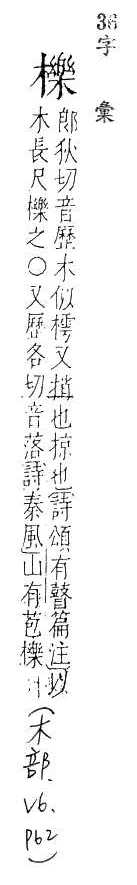 38字彙
櫟
郎狄切音歷木似樗又捎也掠也詩頌有瞽篇注以
木長尺櫟之〇又歷各切音落詩秦風山有苞櫟
(木部.
V6.
P62)